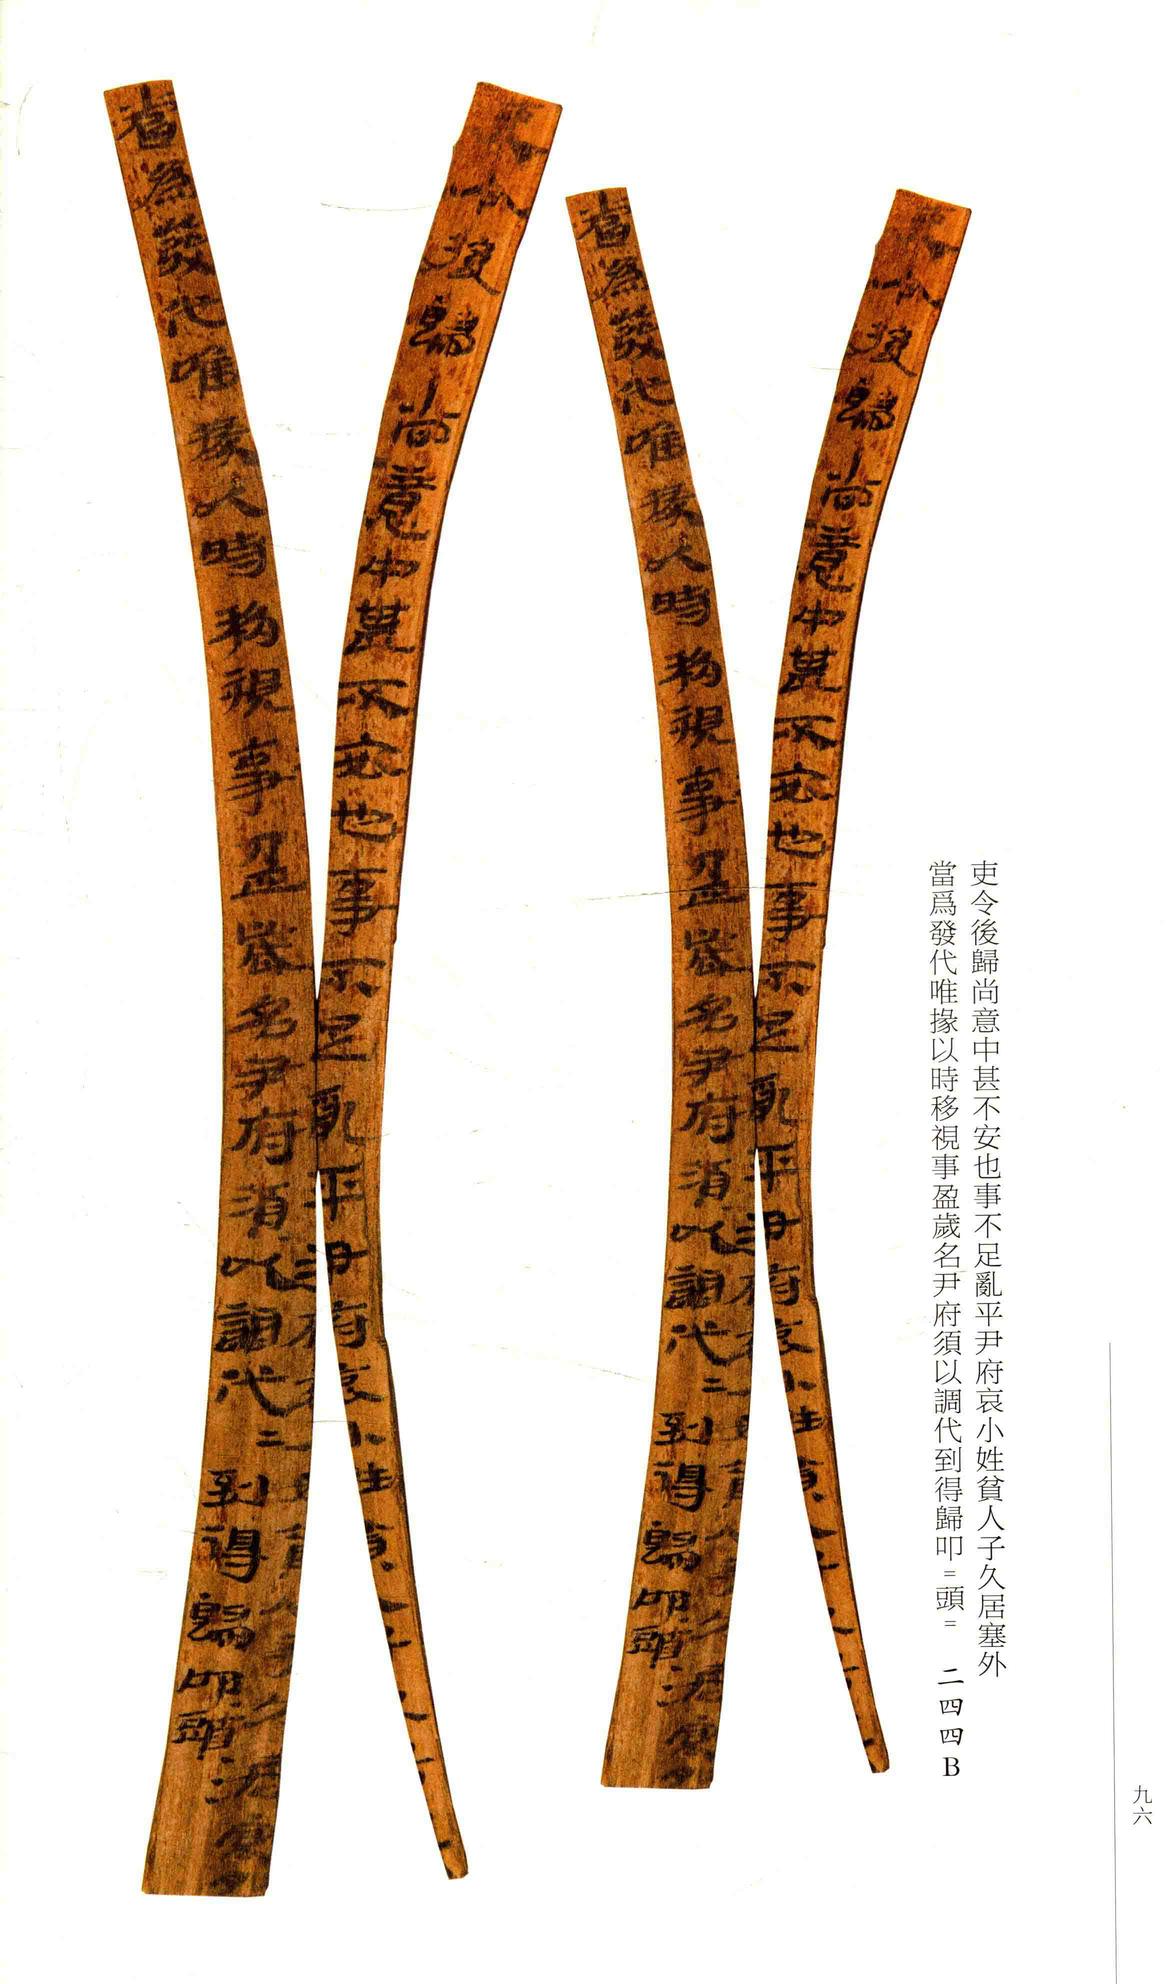 吏令後歸尚意中甚不安也事不足亂平尹府哀小姓貧人子久居塞外
當爲發代唯掾以時移視事盈歲名尹府須以調代到得歸叩=頭= 二四四B
九六